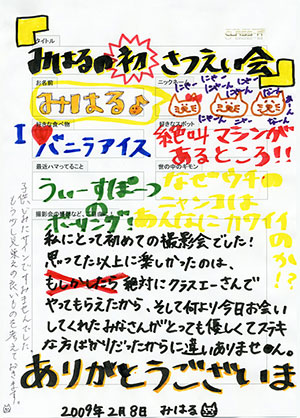 タイトル
みはるの初さつえい会
お名前
ニックネーム
みはる♪
にゃー にゃー にゃー
好きな食べ物
好きなスポット
I ♥ バニラアイス
絶叫マシンが
あるところ!!
最近ハマってること
世の中のギモン
うぃーすぽーつ
の
ボーリング!
なぜウチの
ニャンコは
あんなにカワイイ
のか!?
撮影会の感想など、ご自由に!
私にとって初めての撮影会でした!
思ってた以上に楽しかったのは、
もしかしたら 絶対にクラスエーさんで
やってもらえたから、そして何より今日お会い
してくれたみなさんがとっても優しくてステキ
な方ばかりだったからに違いありません。
ありがとうございま
2009年2月8日 みはる
子供じみたサインですみませんでした。
もう少し見栄えの良いものを考えておきます。